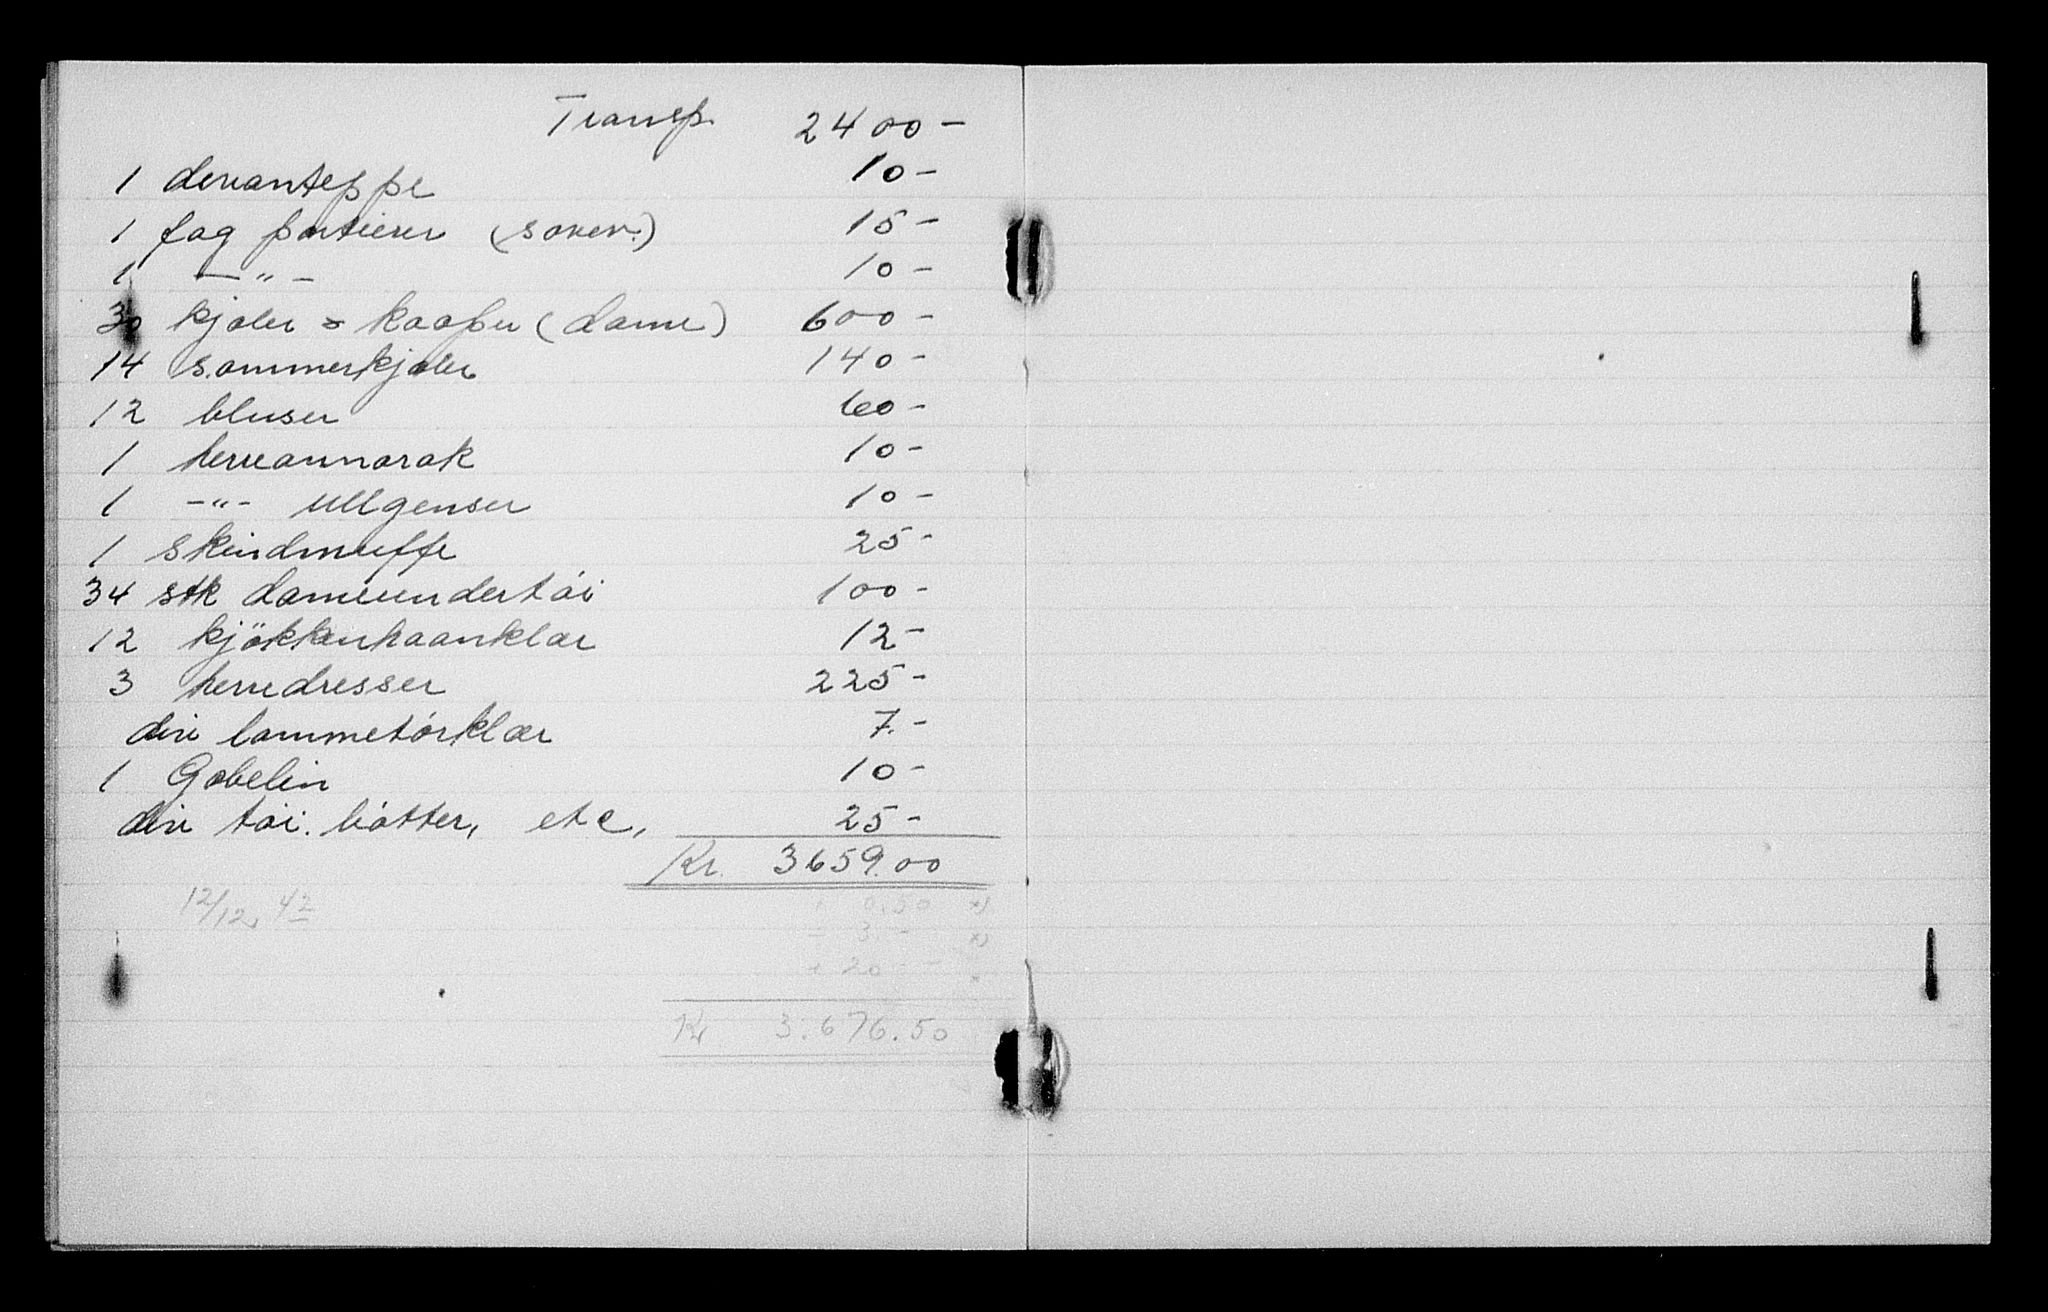 Transp. 2400-
1 divanteppe 10-
1 fag portierer (sovev.) 15-
1 -"- 10-
30 kjoler & kaaper (dame) 600-
14 sommerkjoler 140-
12 bluser 60-
1 herreannorak 10-
1 -"- ullgenser 10-
1 skindmuffe 25-
34 stk dameundertói 100-
12 kjökkenhaanklær 12-
3 herredresser 225-
div lommetórklær 7.-
1 Gobelin 10-
div tói. hótter, etc, 25-
Kr. 3659.00
12/12 42
0,50 *)
3.- *)
20--
Kr 3.676.50